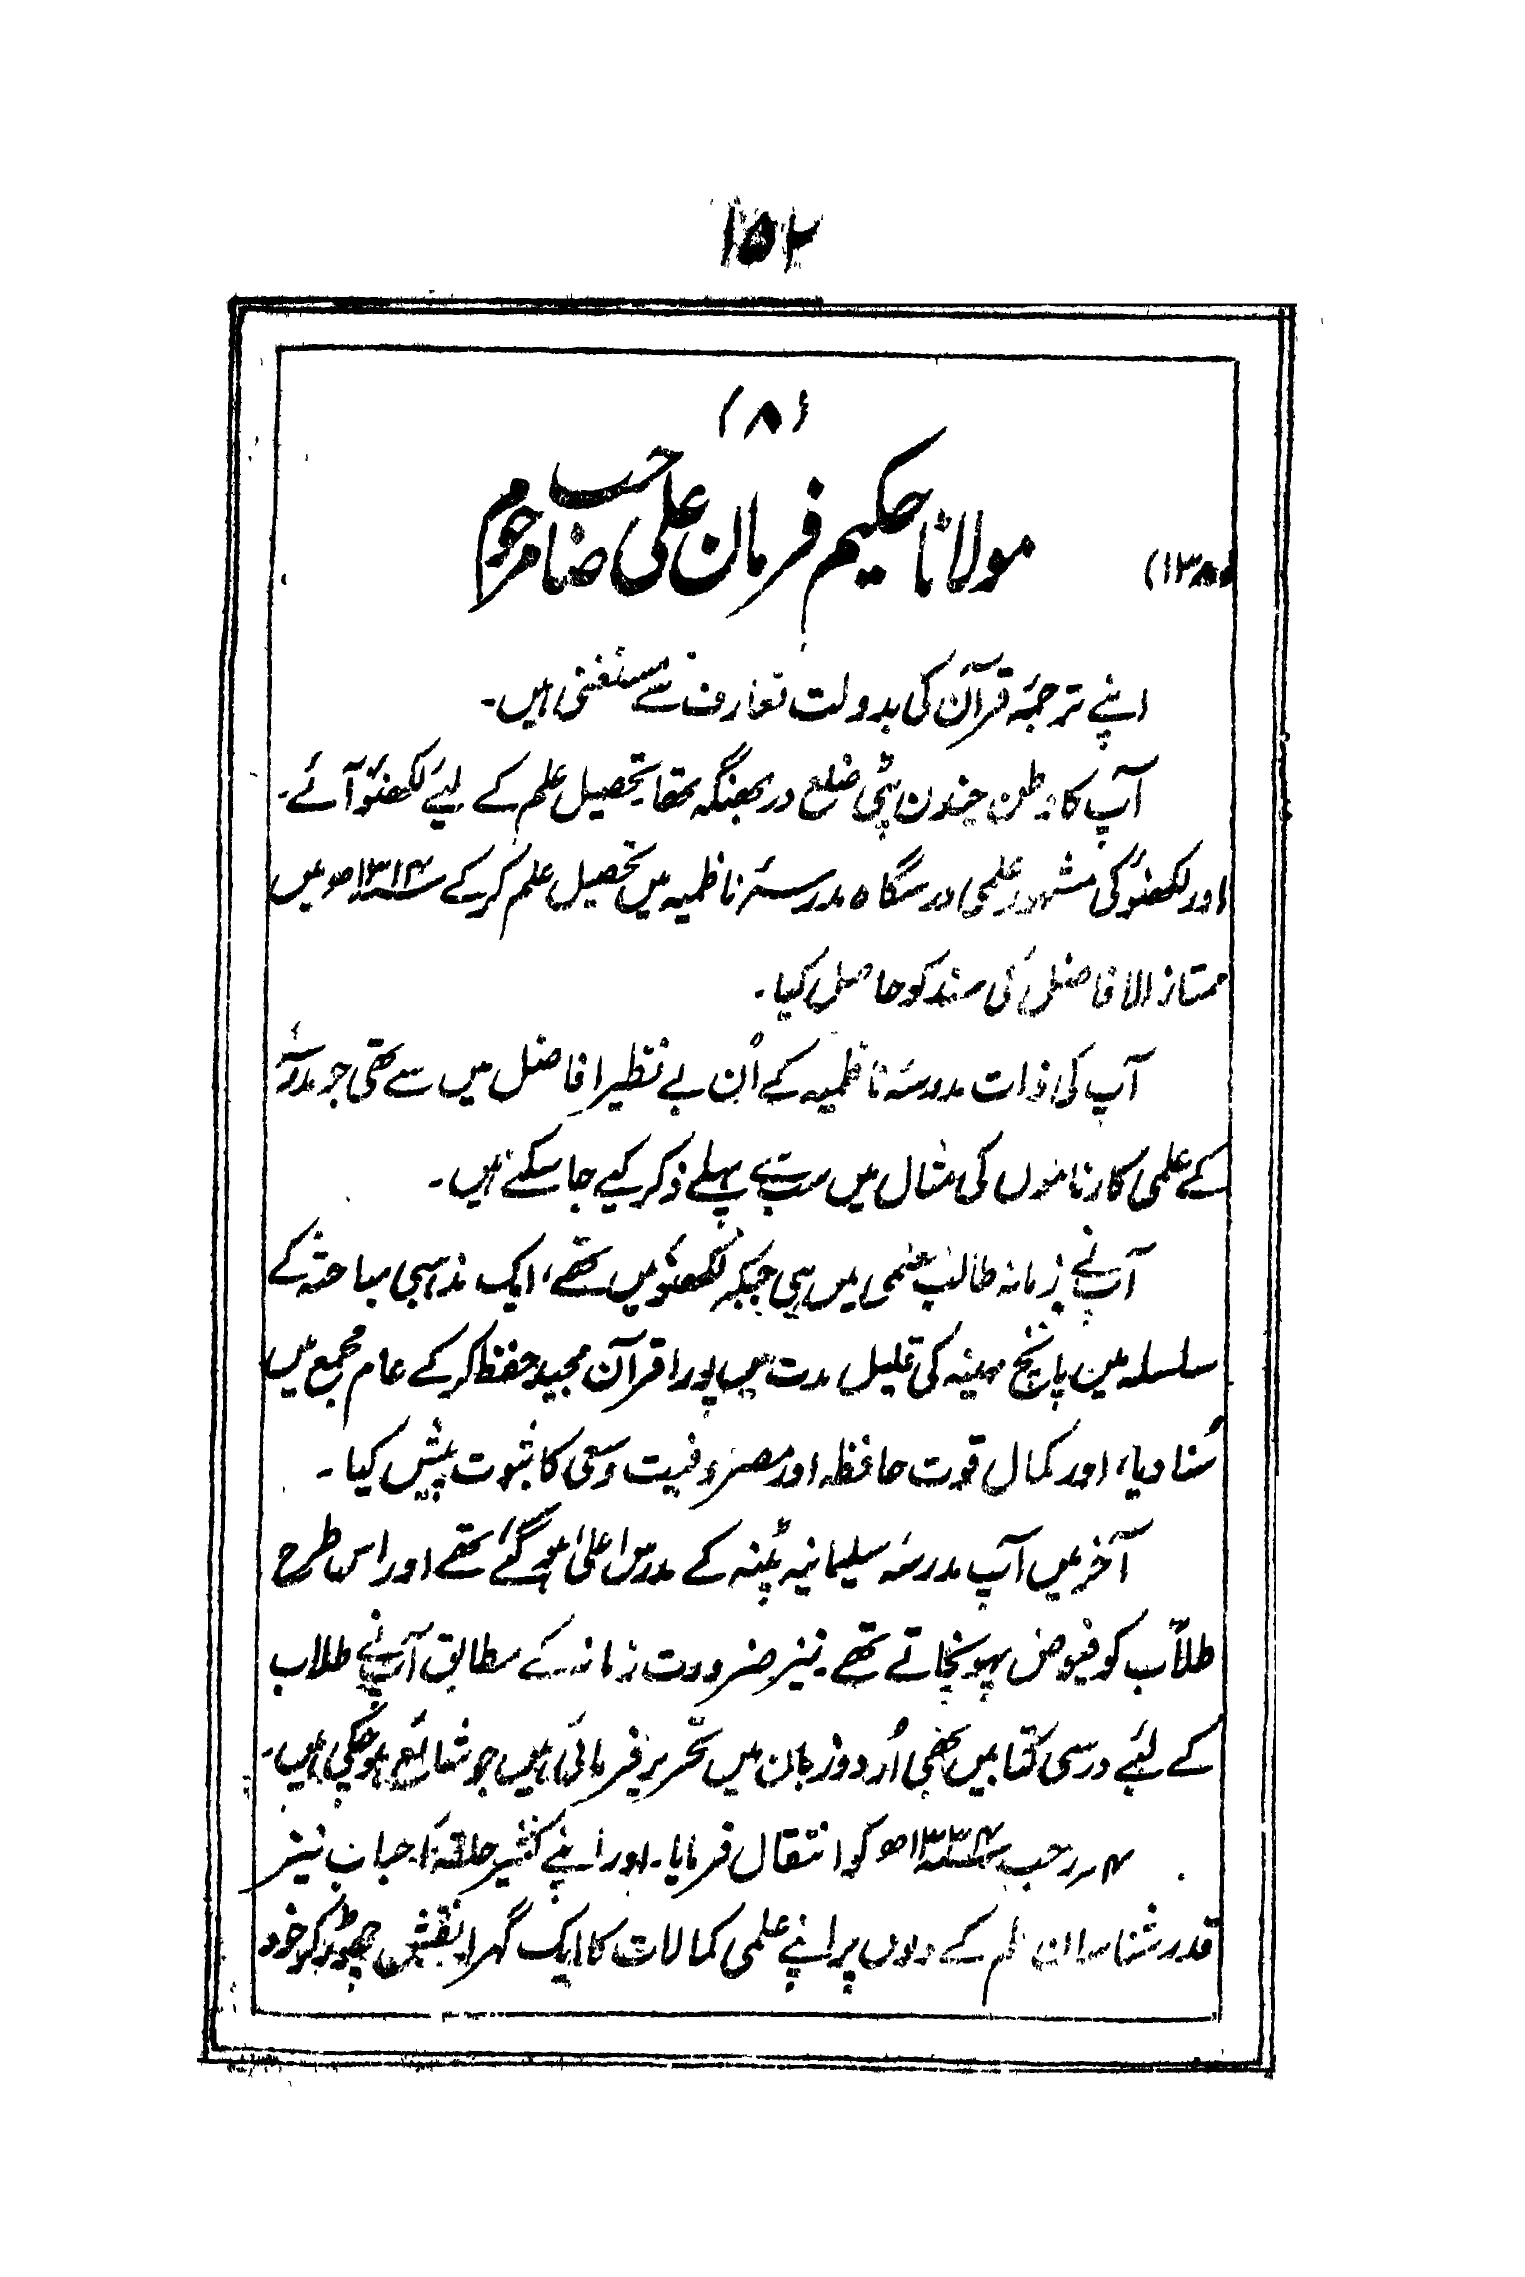 ۱۵۲
(۸)
مولانا حکیم فرمان علی صاحب مرحوم
اپنے ترجمۂ قرآن کی بدولت تعارف سے مستغنی ہیں۔
آپ کا وطن چندن پٹی ضلع دربھنگہ تھا۔ تحصیل علم کے لیے لکھنؤ آئے۔
اور لکھنؤ کی مشہور علمی درسگاہ مدرسۂ ناظمیہ میں تحصیل علم کرکے ۱۳۱۴ھ میں
ممتاز الافاضل کی سند کو حاصل کیا۔
آپ کی ذات مدرسۂ ناظمیہ کے اُن بے نظیر افاضل میں سے تھی جو مدرسۂ
کے علمی کارناموں کی مثال میں سب سے پہلے ذکر کیے جا سکتے ہیں۔
آپ نے زمانہ طالب علمی میں ہی جبکہ لکھنؤ میں تھے، ایک مذہبی مباحثہ کے
سلسلہ میں پانچ مہینہ کی قلیل مدت میں پورا قرآن مجید حفظ کرکے عام مجمع میں
سُنا دیا، اور کمال قوت حافظہ اور مصروفیت وسعی کا ثبوت پیش کیا۔
آخر میں آپ مدرسۂ سلیمانیہ پٹنہ کے مدرس اعلیٰ ہوگئے تھے اور اس طرح
طلاّب کو فیوض پہونچاتے تھے۔ نیز ضرورت زمانہ کے مطابق آپ نے طلاب
کے لئے درسی کتابیں بھی اُردو زبان میں تحریر فرمائی ہیں جو شائع ہوچکی ہیں۔
۴ر رجب ۱۳۳۴ھ کو انتقال فرمایا۔ اور اپنے کثیر حلقۂ احباب نیز
قدرشناسان علم کے دلوں پر اپنے علمی کمالات کا ایک گہرا نقش چھوڑ کر خود